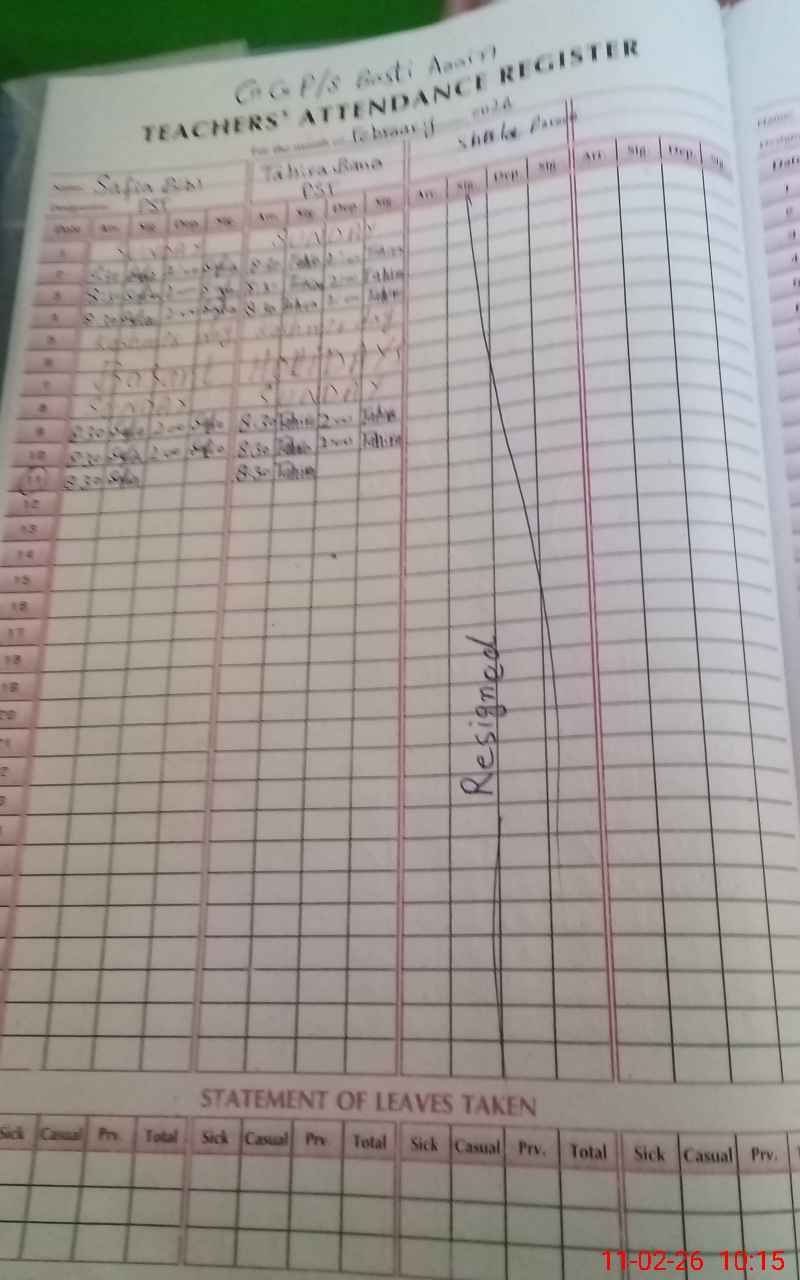 G G P/S Basti
TEACHERS' ATTENDANCE REGISTER
For the month of February 2026
Name Safia Bibi Tahira Bano
PST PST
Date Arr. Sig. Dep. Sig. Arr. Sig. Dep. Sig. Arr. Sig. Dep. Sig. Arr. Sig. Dep. Sig.
1 SUNDAY SUNDAY
2 8:30 Safia 2:00 Safia 8:30 Tahira 2:00 Tahira
3 8:30 Safia 2:00 Safia 8:30 Tahira 2:00 Tahira
4 8:30 Safia 2:00 Safia 8:30 Tahira 2:00 Tahira
5 Kashmir Day Kashmir Day
6
7 HOLIDAYS
8 SUNDAY SUNDAY
9 8:30 Safia 2:00 Safia 8:30 Tahira 2:00 Tahira
10 8:30 Safia 2:00 Safia 8:30 Tahira 2:00 Tahira
11 8:30 Safia 8:30 Tahira
12
13
14
15
16
17
18
19
20
Resigned
STATEMENT OF LEAVES TAKEN
Sick Casual Prv. Total Sick Casual Prv. Total Sick Casual Prv. Total Sick Casual Prv.
11-02-26 10:15